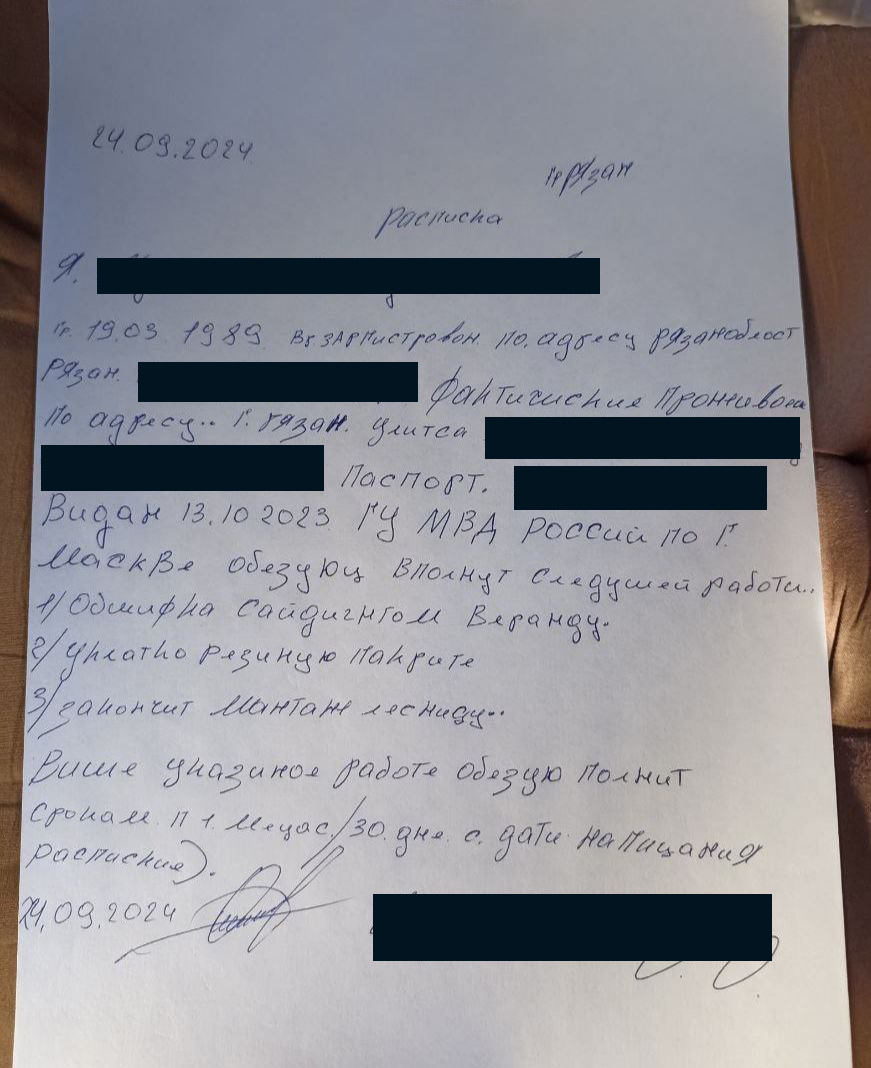 24.09.2024
гр Рязан
расписка
Я.
гр. 19.03 1989 Вг зАРгистровон. по. адресу рязанобласт
Рязан. Фактичиские Проживою
По адресу.. Г. Рязан. улитса
Паспорт.
Видан 13.10 2023 ГУ МВД РОССИЙ ПО Г.
Маскве обезуюц Вполнут следушей работи..
1/ Обшифка Сайдигнгом Веранду.
2/ Уклатко резиную Пакрите
3/ закончит Мантаж лесницу..
Више указиное работе обезую Полнит
Срокам. П 1. Мецас. /30. дне. с. дати. написания
расписние).
24.09.2024